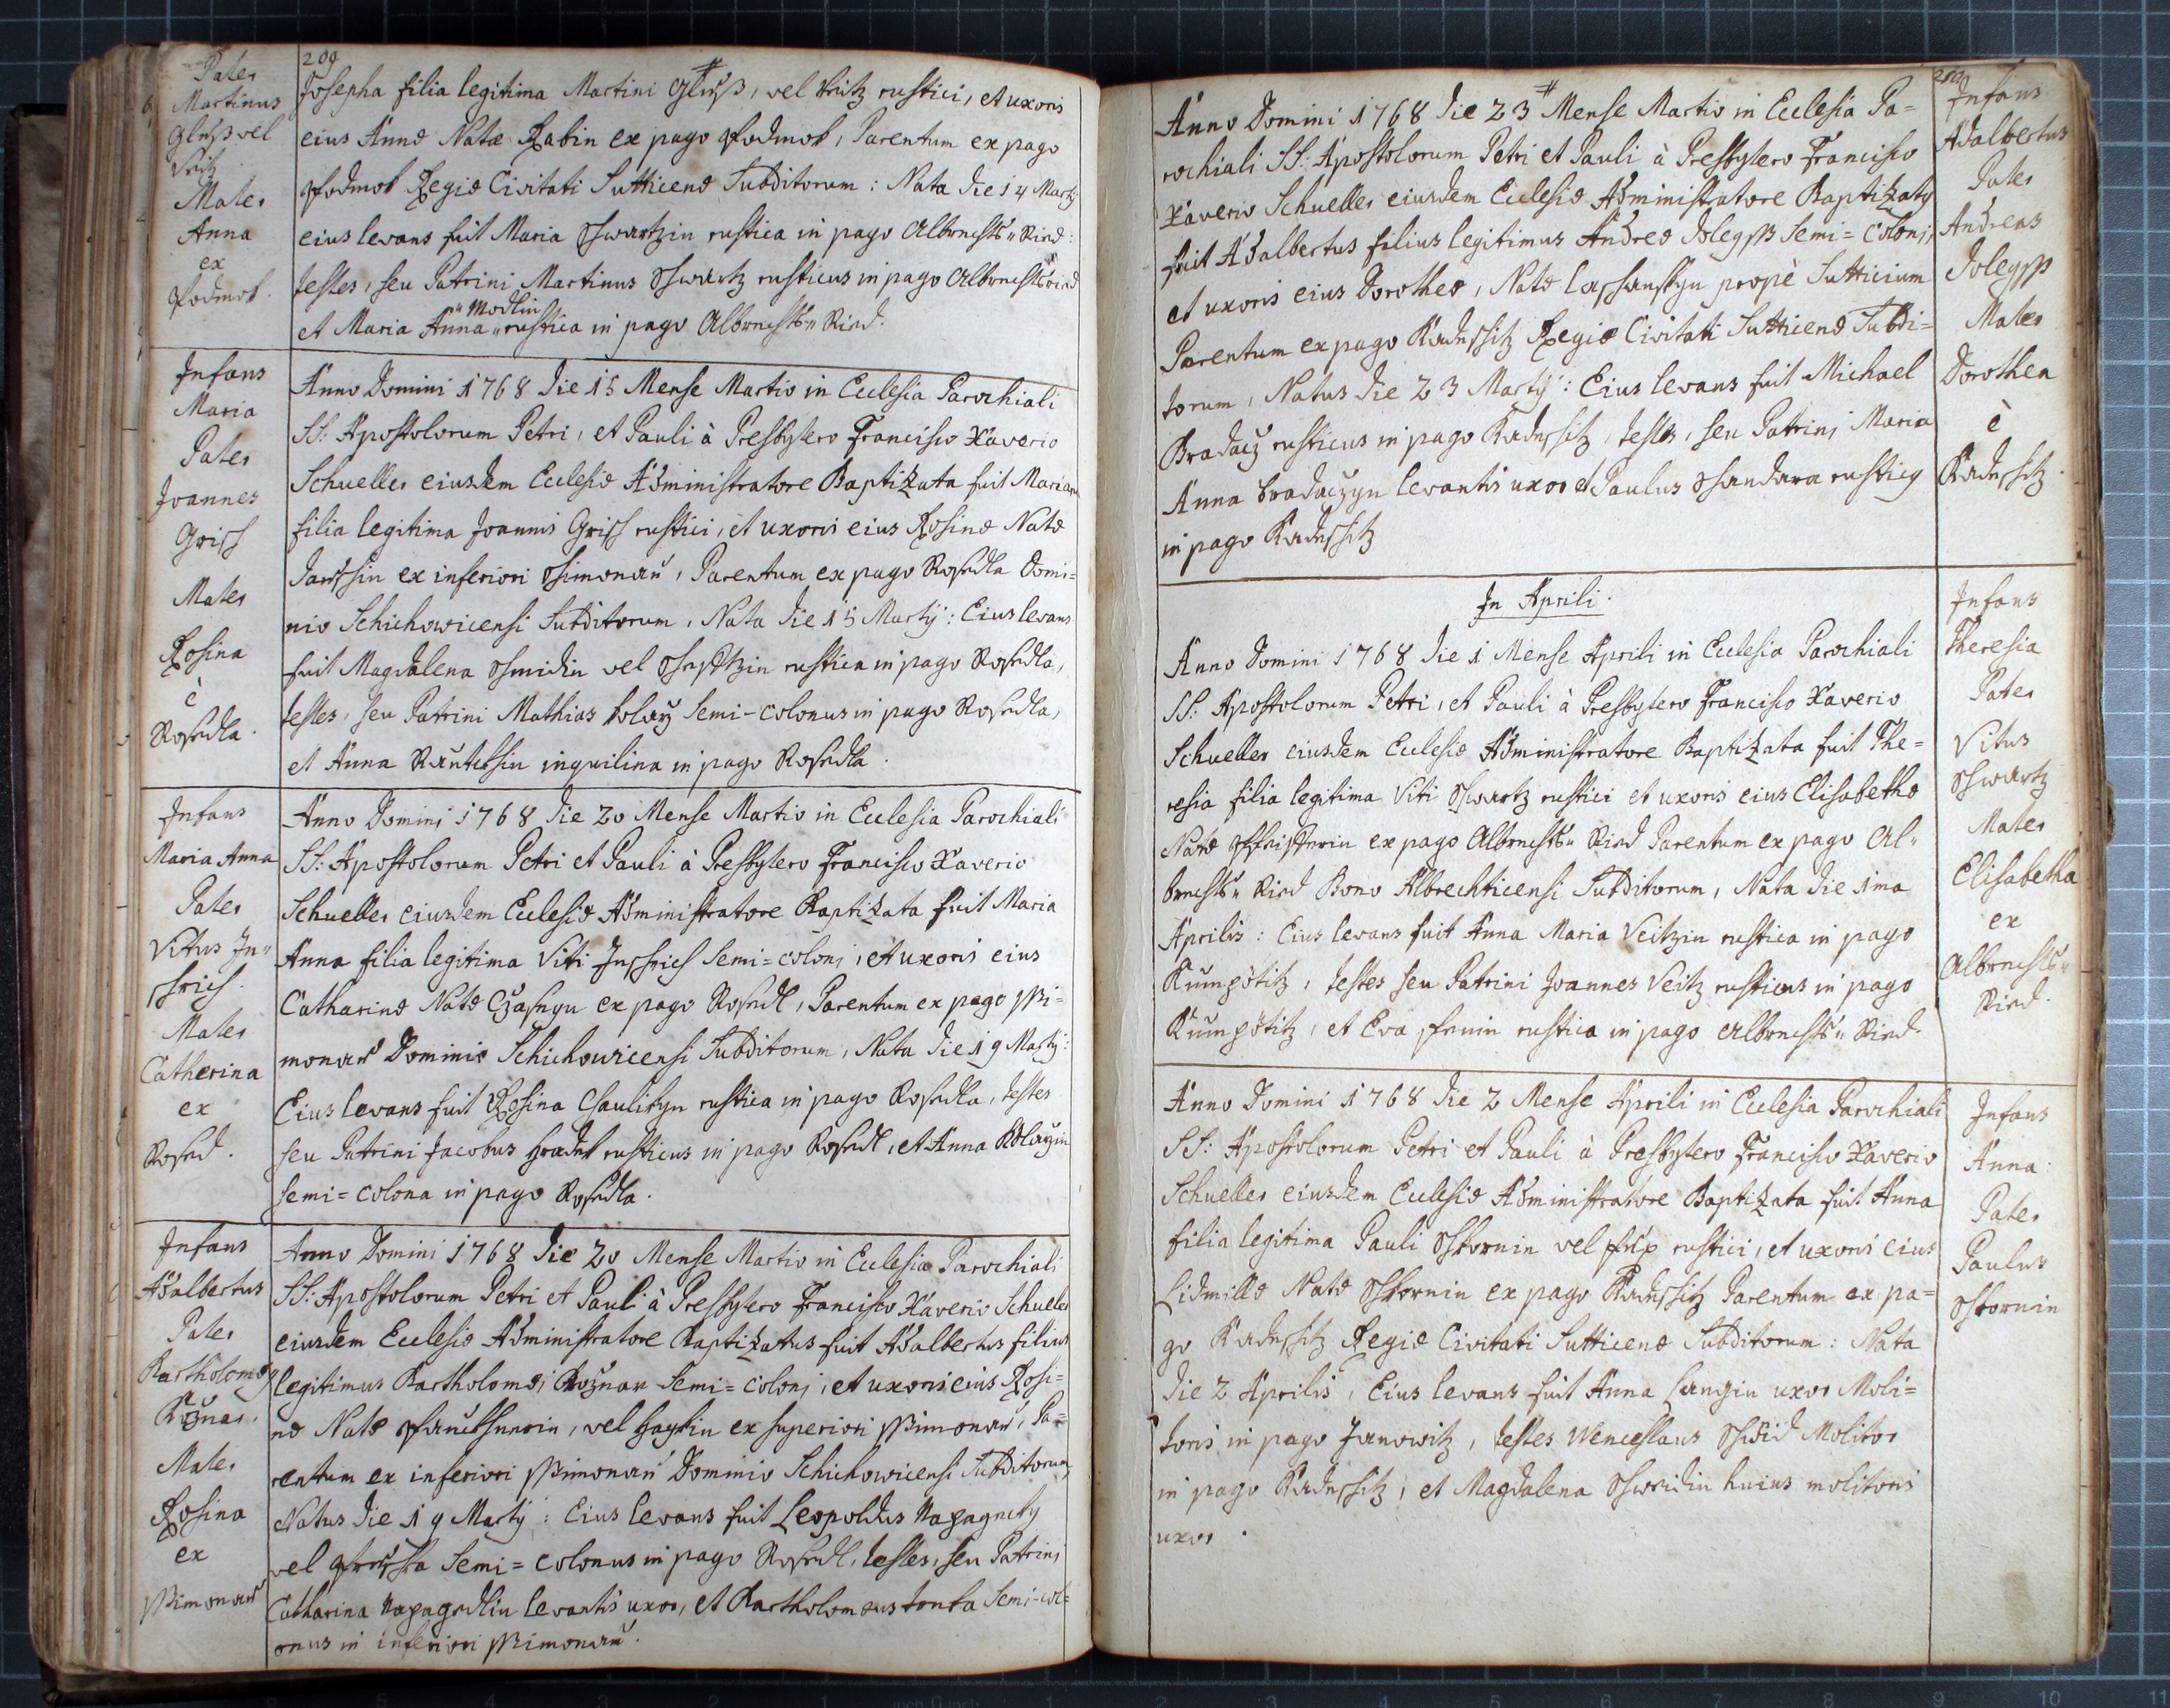 209
Pater
Martinus
Gluß vel
Veitz
Mater
Anna
ex
Podmok.
Josepha filia legitima Martini Gluß, vel Veitz rustici, et uxoris
eius Annæ Natæ Rabin ex pago Podmok, Parentum ex pago
Podmok Regiæ Civitati Sutticenæ Subditorum: Nata die 14 Martij
eius levans fuit Maria Schwartzin rustica in pago Albrechts"Ried:
testes, seu Patrini Martinus Schwartz rusticus in pago Albrechtsried
"Modlin
et Maria Anna "rustica in pago Albrechts"Ried.
Infans
Maria
Pater
Joannes
Grisch
Mater
Rosina
è
Rosedla.
Anno Domini 1768 die 15 Mense Martio in Ecclesia Parochiali
SS: Apostolorum Petri, et Pauli à Presbytero Francisco Xaverio
Schueller eiusdem Ecclesiæ Administratore Baptizata fuit Maria
filia legitima Joannis Grisch rustici, et uxoris eius Rosinæ Natæ
ex inferiori Schimonau, Parentum ex pago Rosedla Domi=
nio Schichowicensi Subditorum, Nata die 15 Martij: Eius levans
fuit Magdalena Schmidin vel rustica in pago Rosedla,
testes, seu Patrini Mathias Kolarz Semi-colonus in pago Rosedla,
et Anna inquilina in pago Rosedla.
Infans
Maria Anna
Pater
Vitus In"
schrich.
Mater
Catherina
ex
Rosed.
Anno Domini 1768 die 20 Mense Martio in Ecclesia Parochiali
SS: Apostolorum Petri et Pauli à Presbytero Francisco Xaverio
Schueller eiusdem Ecclesiæ Administratore Baptizata fuit Maria
Anna filia legitima Viti Inschrich Semi=coloni, et uxoris eius
Catharinæ Natæ ex pago Rosedl, Parentum ex pago Schi=
monau Dominio Schichowicensi Subditorum, Nata die 19 Martij:
Eius levans fuit Rosina rustica in pago Rosedla, testes
seu Patrini Jacobus Hradek rusticus in pago Rosedl, et Anna Kolarzin
Semi=colona in pago Rosedla.
Infans
Adalbertus
Pater
Bartholomæy
Mater
Rosina
ex
Schimonau
Anno Domini 1768 die 20 Mense Martio in Ecclesia Parochiali
SS: Apostolorum Petri et Pauli à Presbytero Francisco Xaverio Schueller
eiusdem Ecclesiæ Administratore Baptizatus fuit Adalbertus filius
legitimus Bartholomæi Semi=coloni, et uxoris eius Rosi=
næ Natæ vel ex superiori Schimonau, Pa=
rentum ex inferiori Schimonau Dominio Schichowicensi Subditorum,
Natus die 19 Martij: Eius levans fuit Leopoldus
vel Semi=colonus in pago Rosedl, testes, seu Patrini
Catharina levantis uxor, et Bartholomæus Semi-col=
onus in inferiori Schimonau.
Anno Domini 1768 die 23 Mense Martio in Ecclesia Pa=
rochiali SS: Apostolorum Petri et Pauli à Presbytero Francisco
Xaverio Schueller eiusdem Ecclesiæ Administratore Baptizaty
fuit Adalbertus filius legitimus Andreæ Dolegsch Semi=coloni,
et uxoris eius Dorotheæ, Natæ prope Sutticium
Parentum ex pago Kadeschitz Regiæ Civitati Sutticenæ Subdi=
torum, Natus die 23 Martij: Eius levans fuit Michael
Bradacz rusticus in pago Kadeschitz, testes, seu Patrini Maria
Anna Bradaczyn levantis uxor et Paulus Schandara rusticy
in pago Kadeschitz
Infans
Adalbertus
Pater
Andreas
Dolegsch
Mater
Dorothea
è
Kadeschitz.
In Aprili.
Anno Domini 1768 die 1 Mense Aprili in Ecclesia Parochiali
SS: Apostolorum Petri, et Pauli à Presbytero Francisco Xaverio
Schueller eiusdem Ecclesiæ Administratore Baptizata fuit The=
resia filia legitima Viti Schwartz rustici et uxoris eius Elisabethæ
Natæ ex pago Albrechts"Ried Parentum ex pago Al"
brechts"Ried Bono Albrechticensi Subditorum, Nata die 1ma
Aprilis: Eius levans fuit Anna Maria Veitzin rustica in pago
Kumpötitz, testes seu Patrini Joannes Veitz rusticus in pago
Kumpötitz, et Eva rustica in pago Albrechts"Ried.
Infans
Theresia
Pater
Vitus
Schwartz
Mater
Elisabetha
ex
Albrechts"
Ried.
Anno Domini 1768 die 2 Mense Aprili in Ecclesia Parochiali
SS: Apostolorum Petri et Pauli à Presbytero Francisco Xaverio
Schueller eiusdem Ecclesiæ Administratore Baptizata fuit Anna
filia legitima Pauli Schkornin vel rustici, et uxoris eius
Lidmillæ Natæ Schkornin ex pago Kadeschitz Parentum ex pa=
go Kadeschitz Regiæ Civitati Sutticenæ Subditorum: Nata
die 2 Aprilis, Eius levans fuit Anna Langin uxor Moli=
toris in pago Janowitz, testes Wenceslaus Molitor
in pago Kadeschitz, et Magdalena huius molitoris
uxor.
Infans
Anna
Pater
Paulus
Schkornin